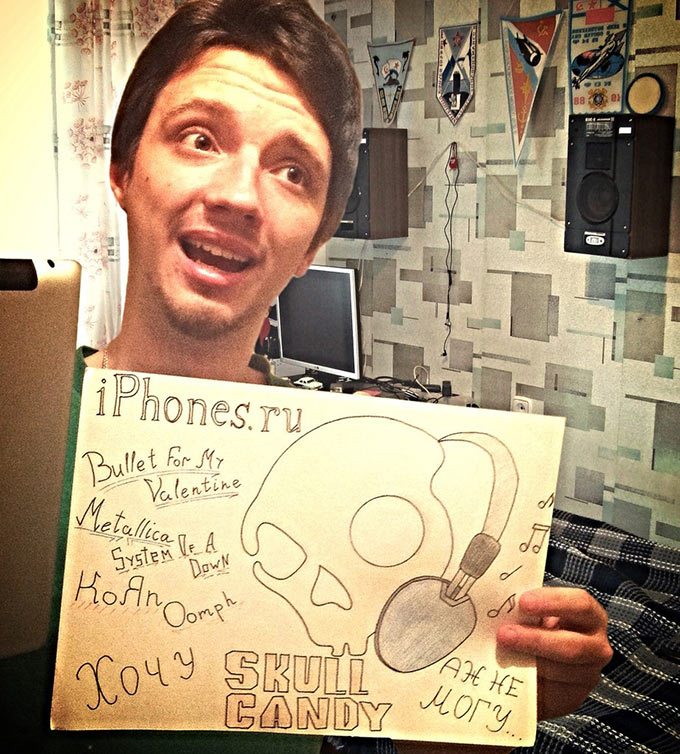 iPhones.ru
Bullet For My
Valentine
Metallica
System Of A
Down
KoЯn
Oomph
Хочу
SKULL
CANDY
АЖ НЕ
МОГУ...